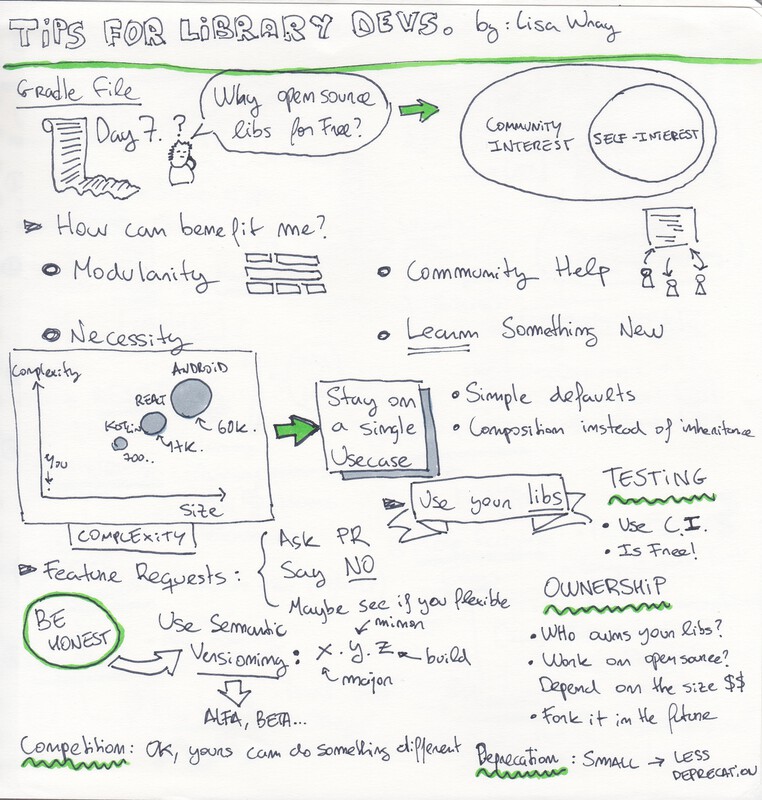 TIPS FOR LIBRARY DEVS. by: Lisa Wray
Gradle File
Day 7. ?
Why open source
libs for Free?
COMMUNITY
INTEREST
SELF-INTEREST
How can benefit me?
Modularity
Community Help
Necessity
Learn Something New
Complexity
ANDROID
REACT
KOTLIN
60K.
17K.
700..
YOU
Size
COMPLEXITY
Stay on
a single
Usecase
Simple defaults
Composition instead of inheritance
Use your libs
TESTING
Use C.I.
Is Free!
Feature Requests:
Ask PR
Say NO
Maybe see if you flexible
BE
HONEST
Use Semantic
Versioning: X.Y.Z
minor
build
major
ALFA, BETA...
OWNERSHIP
Who owns your libs?
Work on opensource?
Depend on the size $$
Fork it in the future
Competition: OK, yours can do something different
Deprecation: SMALL → LESS
DEPRECATION